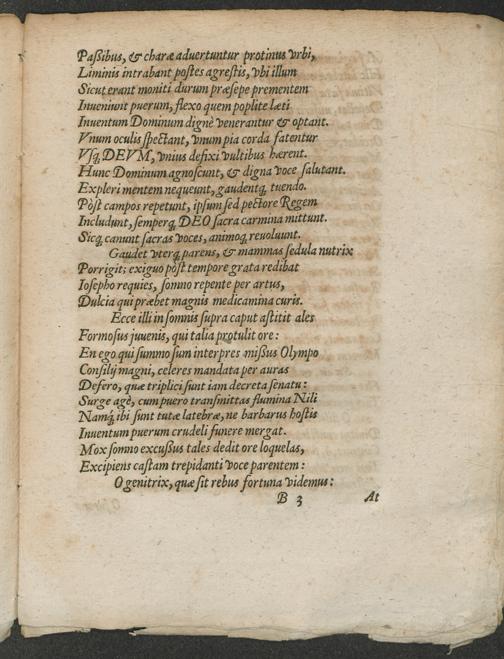 Paſsibus, & charæ aduertuntur protinus vrbi,
Liminis intrabant poſtes agreſtis, vbi illum
Sicut erant moniti durum præſepe prementem
Inueniunt puerum, flexo quem poplite læti
Inuentum Dominum dignè venerantur & optant.
Vnum oculis ſpectant, vnum pia corda fatentur
Vſq́; DEVM, vnius defixi vultibus hærent.
Hunc Dominum agnoſcunt, & digna voce ſalutant.
Expleri mentem nequeunt, gaudentq́; tuendo.
Pòſt campos repetunt, ipſum ſed pectore Regem
Includunt, ſemperq́; DEO ſacra carmina mittunt.
Sicq́; canunt ſacras voces, animoq́; reuoluunt.
Gaudet vterq́; parens, & mammas ſedula nutrix
Porrigit; exiguo pòſt tempore grata redibat
Ioſepho requies, ſomno repente per artus,
Dulcia qui præbet magnis medicamina curis.
Ecce illi in ſomnis ſupra caput aſtitit ales
Formoſus juuenis, qui talia protulit ore:
En ego qui ſummo ſum interpres mißus Olympo
Conſilij magni, celeres mandata per auras
Defero, quæ triplici ſunt iam decreta ſenatu:
Surge agè, cum puero tranſmittas flumina Nili
Namq́; ibi ſunt tutæ latebræ, ne barbarus hoſtis
Inuentum puerum crudeli funere mergat.
Mox ſomno excuſſus tales dedit ore loquelas,
Excipiens caſtam trepidanti voce parentem:
O genitrix, quæ ſit rebus fortuna videmus:
B 3 At